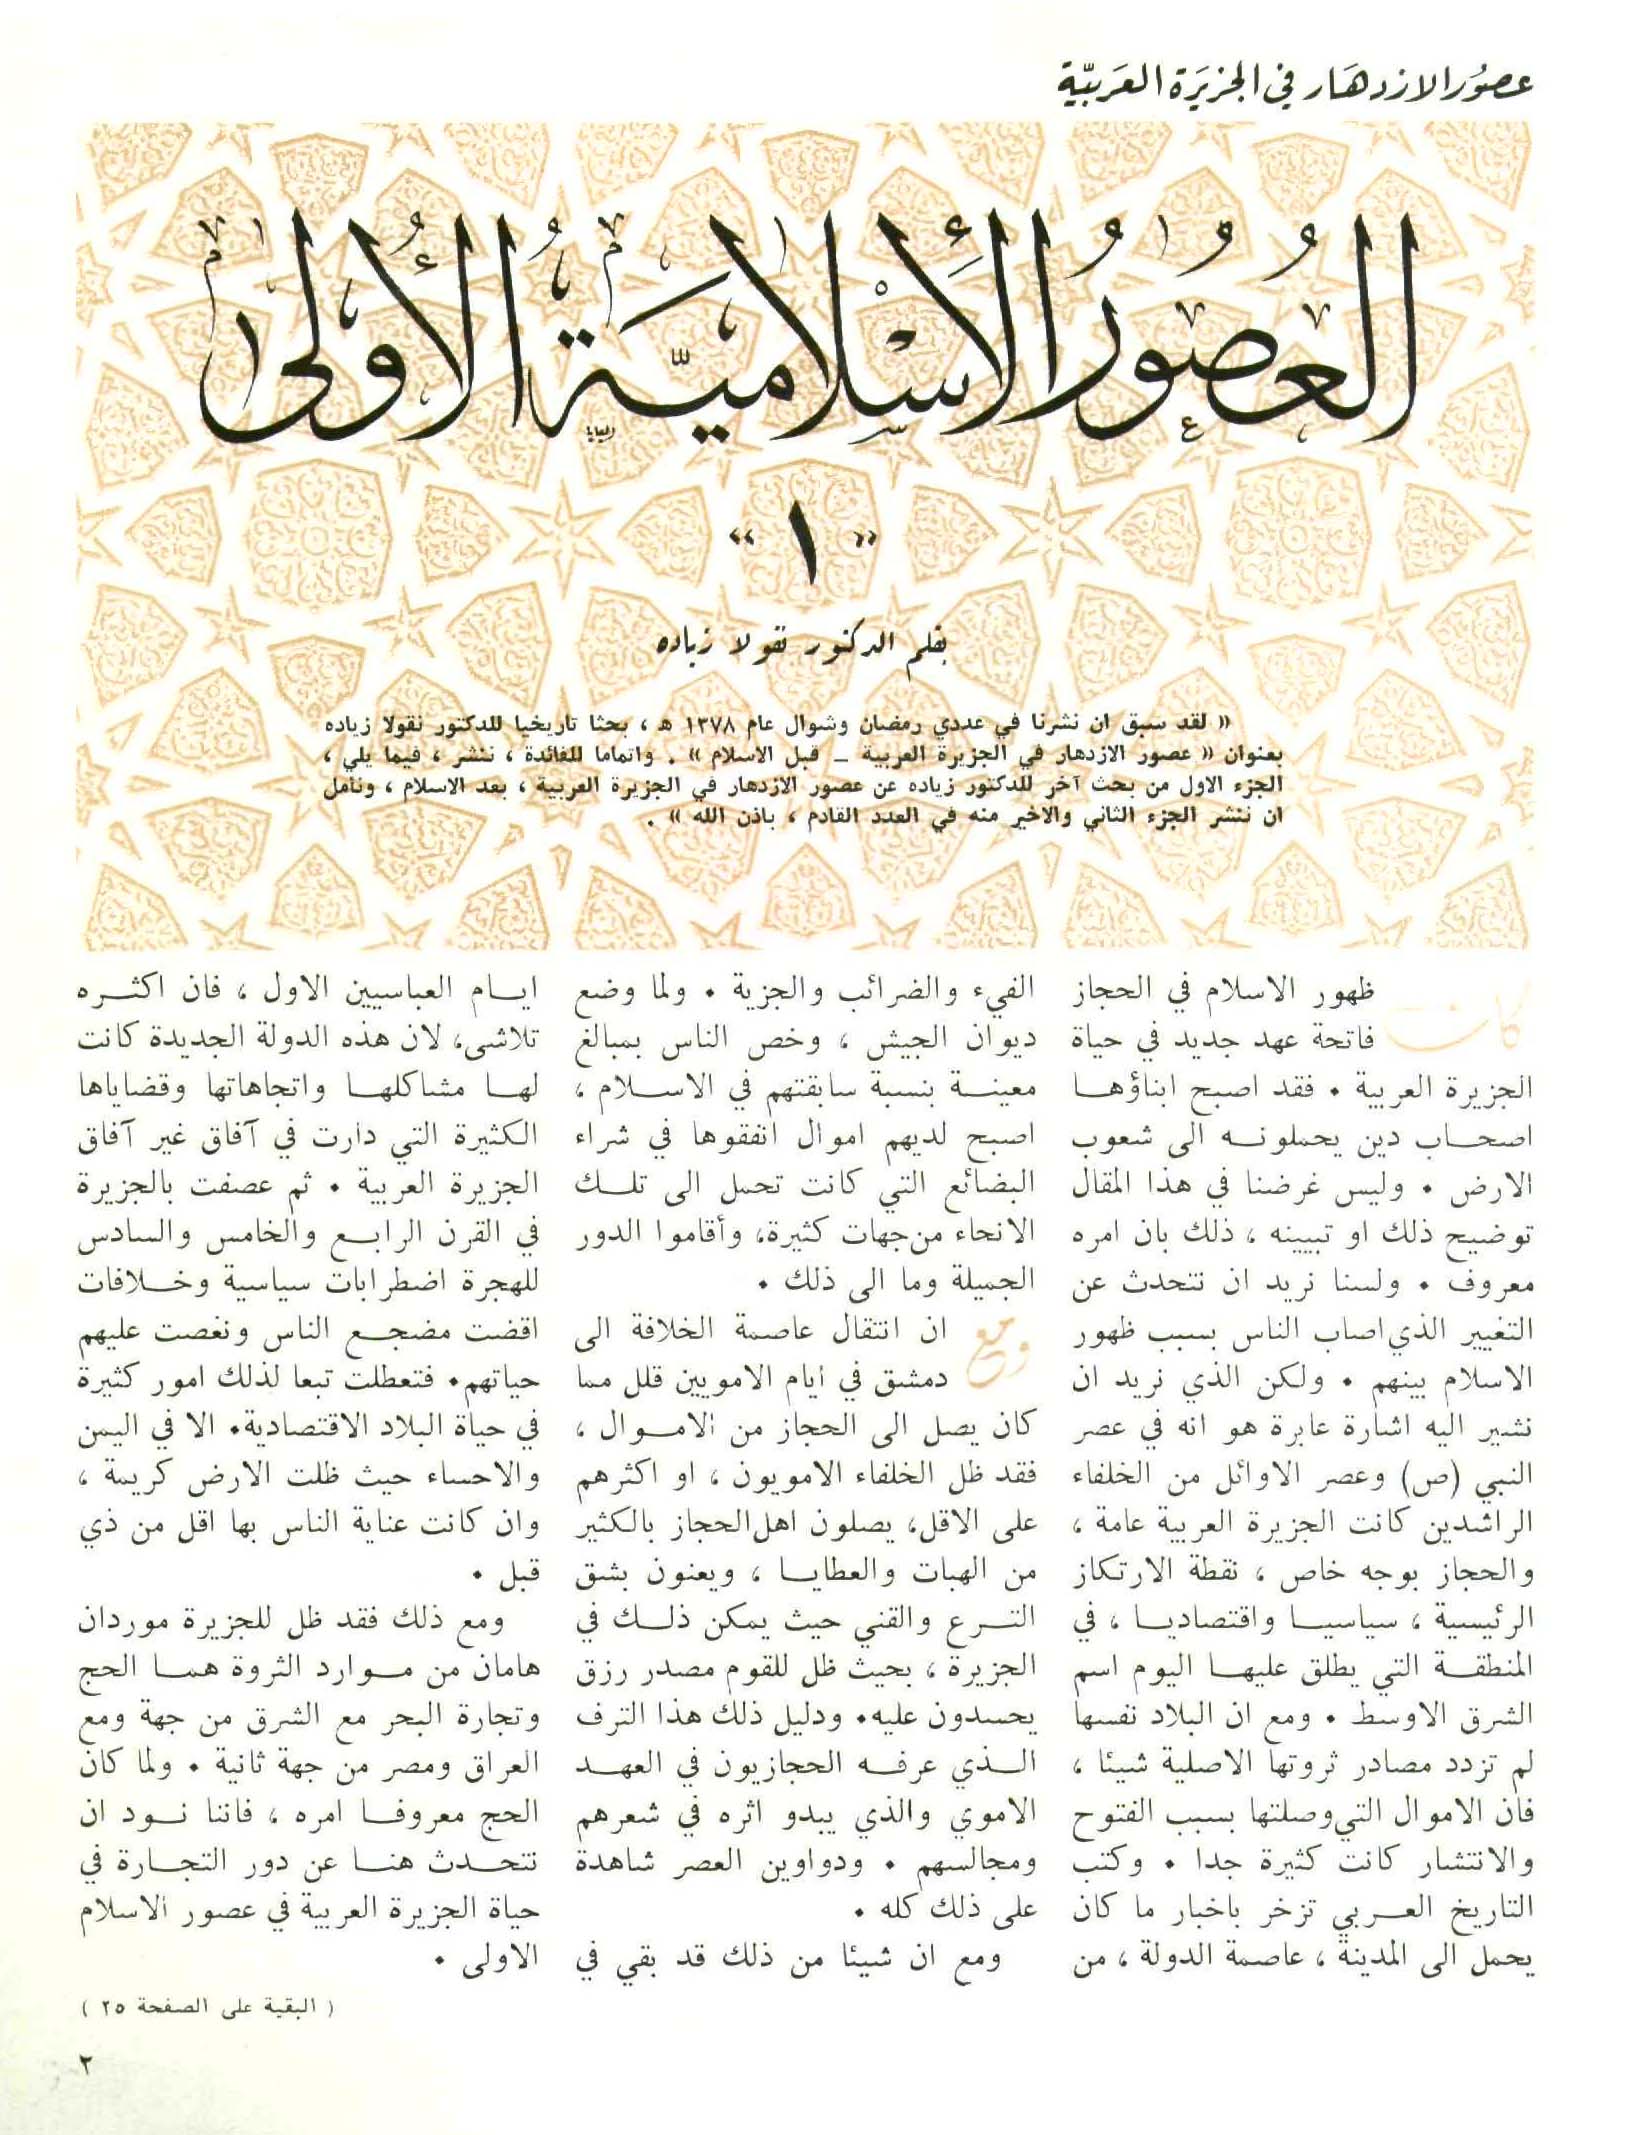 عصور الازدهار في الجزيرة العربية
العصور الإسلامية الأولى
« ١ »
بقلم الدكتور نقولا زياده
« لقد سبق ان نشرنا في عددي رمضان وشوال عام ١٣٧٨ هـ ، بحثا تاريخيا للدكتور نقولا زياده
بعنوان « عصور الازدهار في الجزيرة العربية ــ قبل الاسلام » . واتماما للفائدة ، ننشر ، فيما يلي ،
الجزء الاول من بحث آخر للدكتور زياده عن عصور الازدهار في الجزيرة العربية ، بعد الاسلام ، ونأمل
ان ننشر الجزء الثاني والاخير منه في العدد القادم ، باذن الله » .
كان ظهور الاسلام في الحجاز
فاتحة عهد جديد في حياة
الجزيرة العربية . فقد اصبح ابناؤها
اصحاب دين يحملونه الى شعوب
الارض . وليس غرضنا في هذا المقال
توضيح ذلك او تبيينه ، ذلك بان امره
معروف . ولسنا نريد ان نتحدث عن
التغيير الذي اصاب الناس بسبب ظهور
الاسلام بينهم . ولكن الذي نريد ان
نشير اليه اشارة عابرة هو انه في عصر
النبي (ص) وعصر الاوائل من الخلفاء
الراشدين كانت الجزيرة العربية عامة ،
والحجاز بوجه خاص ، نقطة الارتكاز
الرئيسية ، سياسيا واقتصاديا ، في
المنطقة التي يطلق عليها اليوم اسم
الشرق الاوسط . ومع ان البلاد نفسها
لم تزدد مصادر ثروتها الاصلية شيئا ،
فان الاموال التي وصلتها بسبب الفتوح
والانتشار كانت كثيرة جدا . وكتب
التاريخ العربي تزخر باخبار ما كان
يحمل الى المدينة ، عاصمة الدولة ، من
الفيء والضرائب والجزية . ولما وضع
ديوان الجيش ، وخص الناس بمبالغ
معينة بنسبة سابقتهم في الاسلام ،
اصبح لديهم اموال انفقوها في شراء
البضائع التي كانت تحمل الى تلك
الانحاء من جهات كثيرة، وأقاموا الدور
الجميلة وما الى ذلك .
ومع ان انتقال عاصمة الخلافة الى
دمشق في ايام الامويين قلل مما
كان يصل الى الحجاز من الاموال ،
فقد ظل الخلفاء الامويون ، او اكثرهم
على الاقل، يصلون اهل الحجاز بالكثير
من الهبات والعطايا ، ويعنون بشق
الترع والقني حيث يمكن ذلك في
الجزيرة ، بحيث ظل للقوم مصدر رزق
يحسدون عليه. ودليل ذلك هذا الترف
الذي عرفه الحجازيون في العهد
الاموي والذي يبدو اثره في شعرهم
ومجالسهم . ودواوين العصر شاهدة
على ذلك كله .
ومع ان شيئا من ذلك قد بقي في
ايام العباسيين الاول ، فان اكثره
تلاشى، لان هذه الدولة الجديدة كانت
لها مشاكلها واتجاهاتها وقضاياها
الكثيرة التي دارت في آفاق غير آفاق
الجزيرة العربية . ثم عصفت بالجزيرة
في القرن الرابع والخامس والسادس
للهجرة اضطرابات سياسية وخلافات
اقضت مضجع الناس ونغصت عليهم
حياتهم. فتعطلت تبعا لذلك امور كثيرة
في حياة البلاد الاقتصادية. الا في اليمن
والاحساء حيث ظلت الارض كريمة ،
وان كانت عناية الناس بها اقل من ذي
قبل .
ومع ذلك فقد ظل للجزيرة موردان
هامان من موارد الثروة هما الحج
وتجارة البحر مع الشرق من جهة ومع
العراق ومصر من جهة ثانية . ولما كان
الحج معروفا امره ، فاننا نود ان
نتحدث هنا عن دور التجارة في
حياة الجزيرة العربية في عصور الاسلام
الاولى .
( البقية على الصفحة ٢٥ )
٢